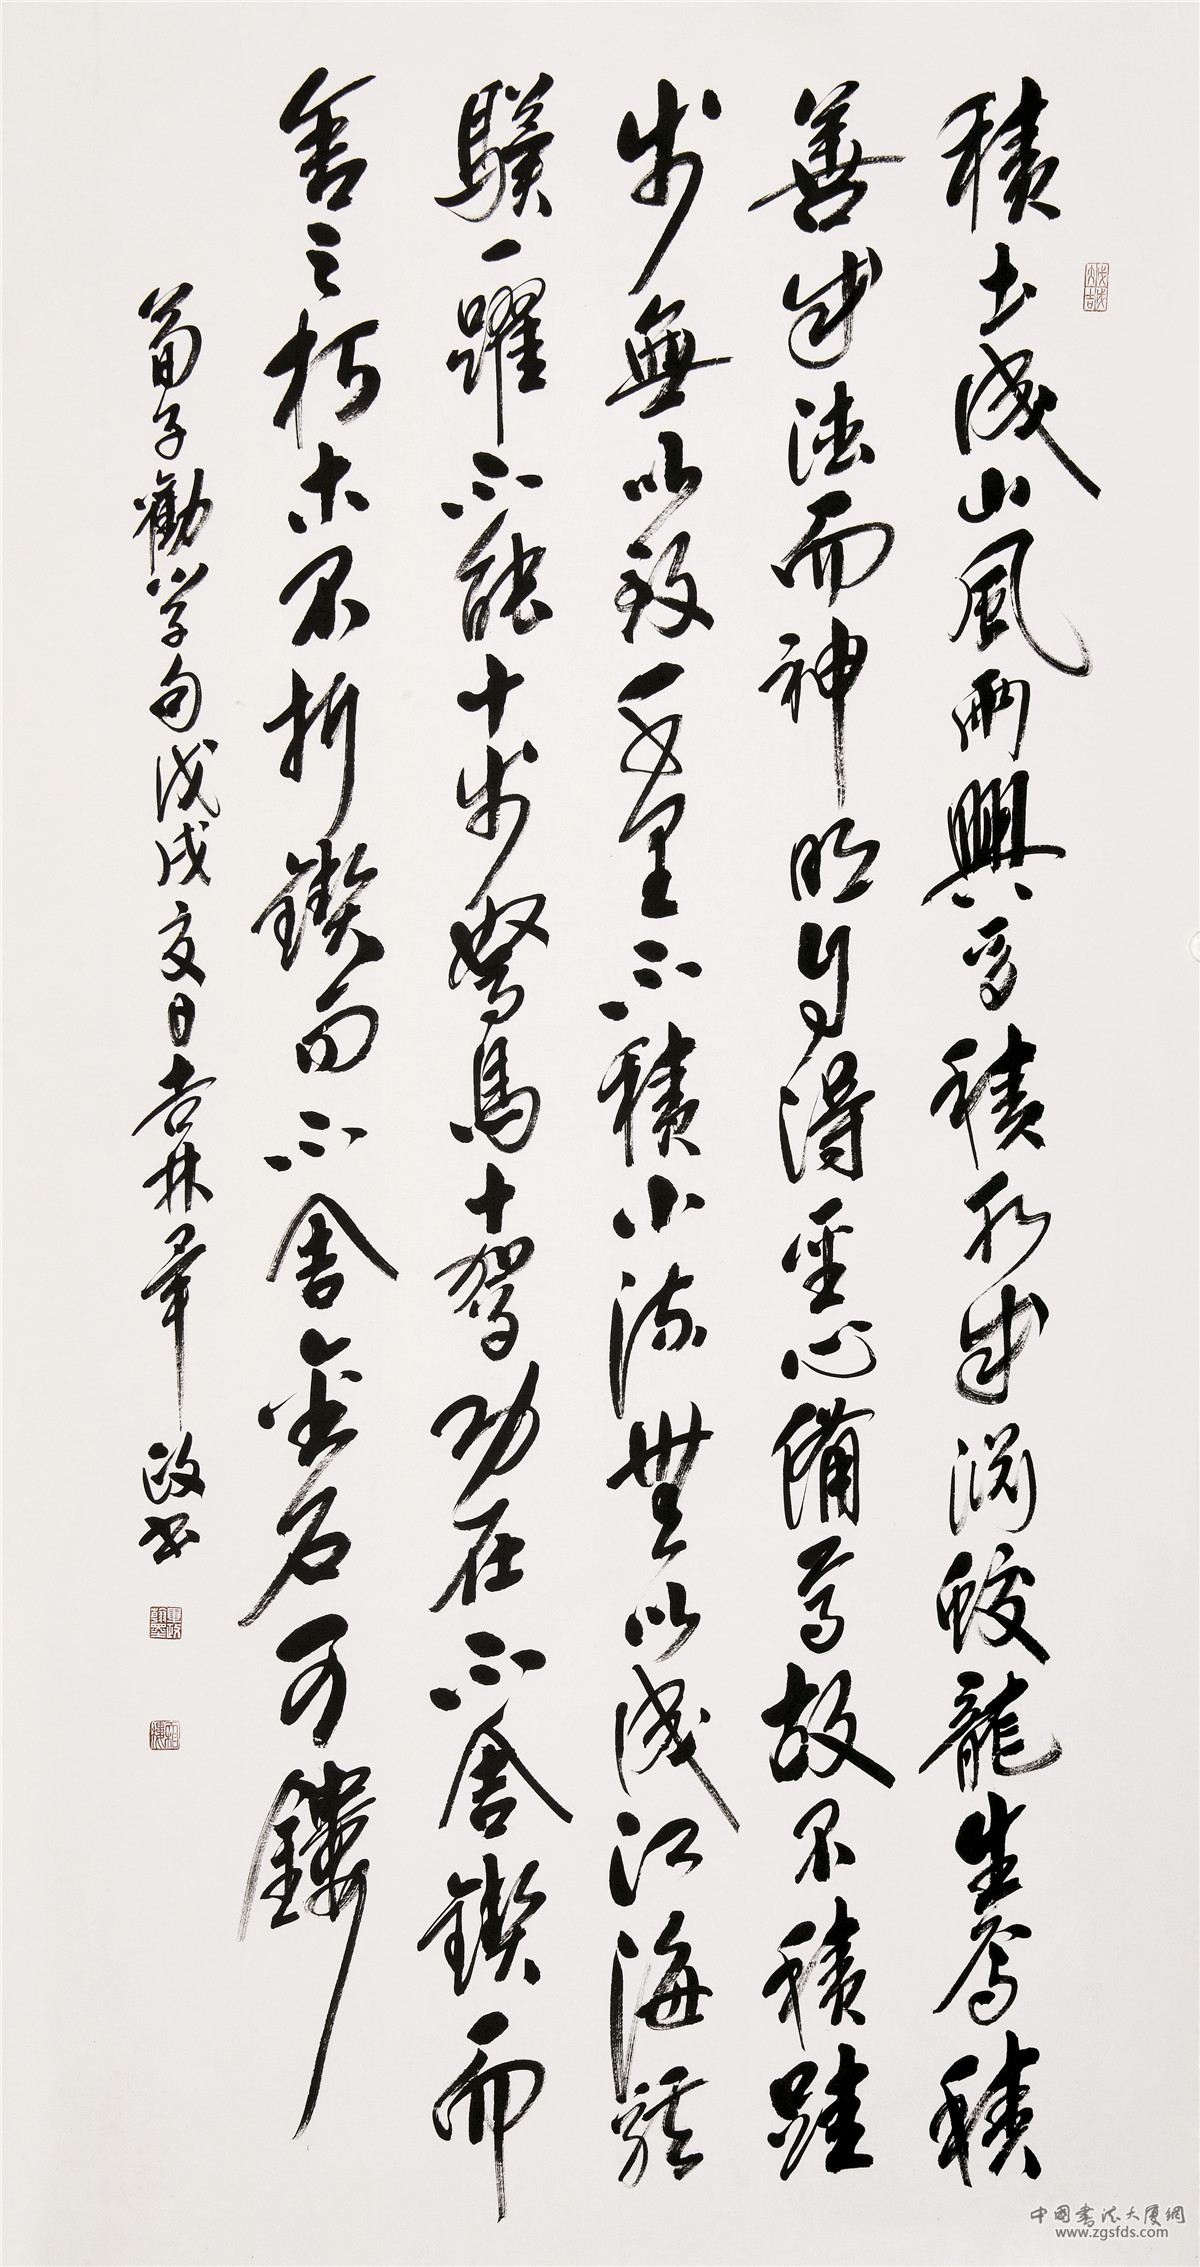 積土成山風雨興焉積水成淵蛟龍生焉積
善成德而神明自得聖心備焉故不積跬
步無以致千里不積小流無以成江海騏
驥一躍不能十步駑馬十駕功在不舍鍥而
舍之朽木不折鍥而不舍金石可鏤
荀子勸學句戊戌夏日吉林軍政書
中國書法大廈網
www.zgsfds.com